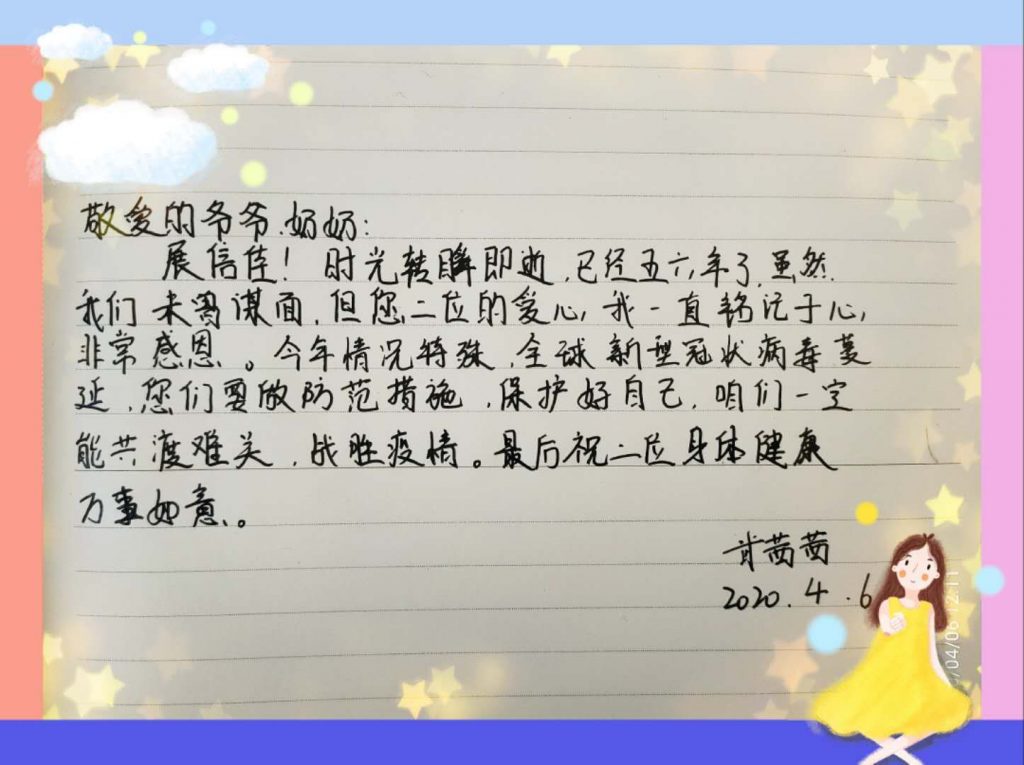 敬爱的爷爷.奶奶:
展信佳! 时光转瞬即逝,已经五六年了,虽然
我们未曾谋面,但您二位的爱心,我一直铭记于心,
非常感恩。今年情况特殊,全球新型冠状病毒蔓
延,您们要做防范措施,保护好自己,咱们一定
能共渡难关,战胜疫情。最后祝二位身体健康
万事如意。
肖茜茜
2020.4.6
/04/06 12:11